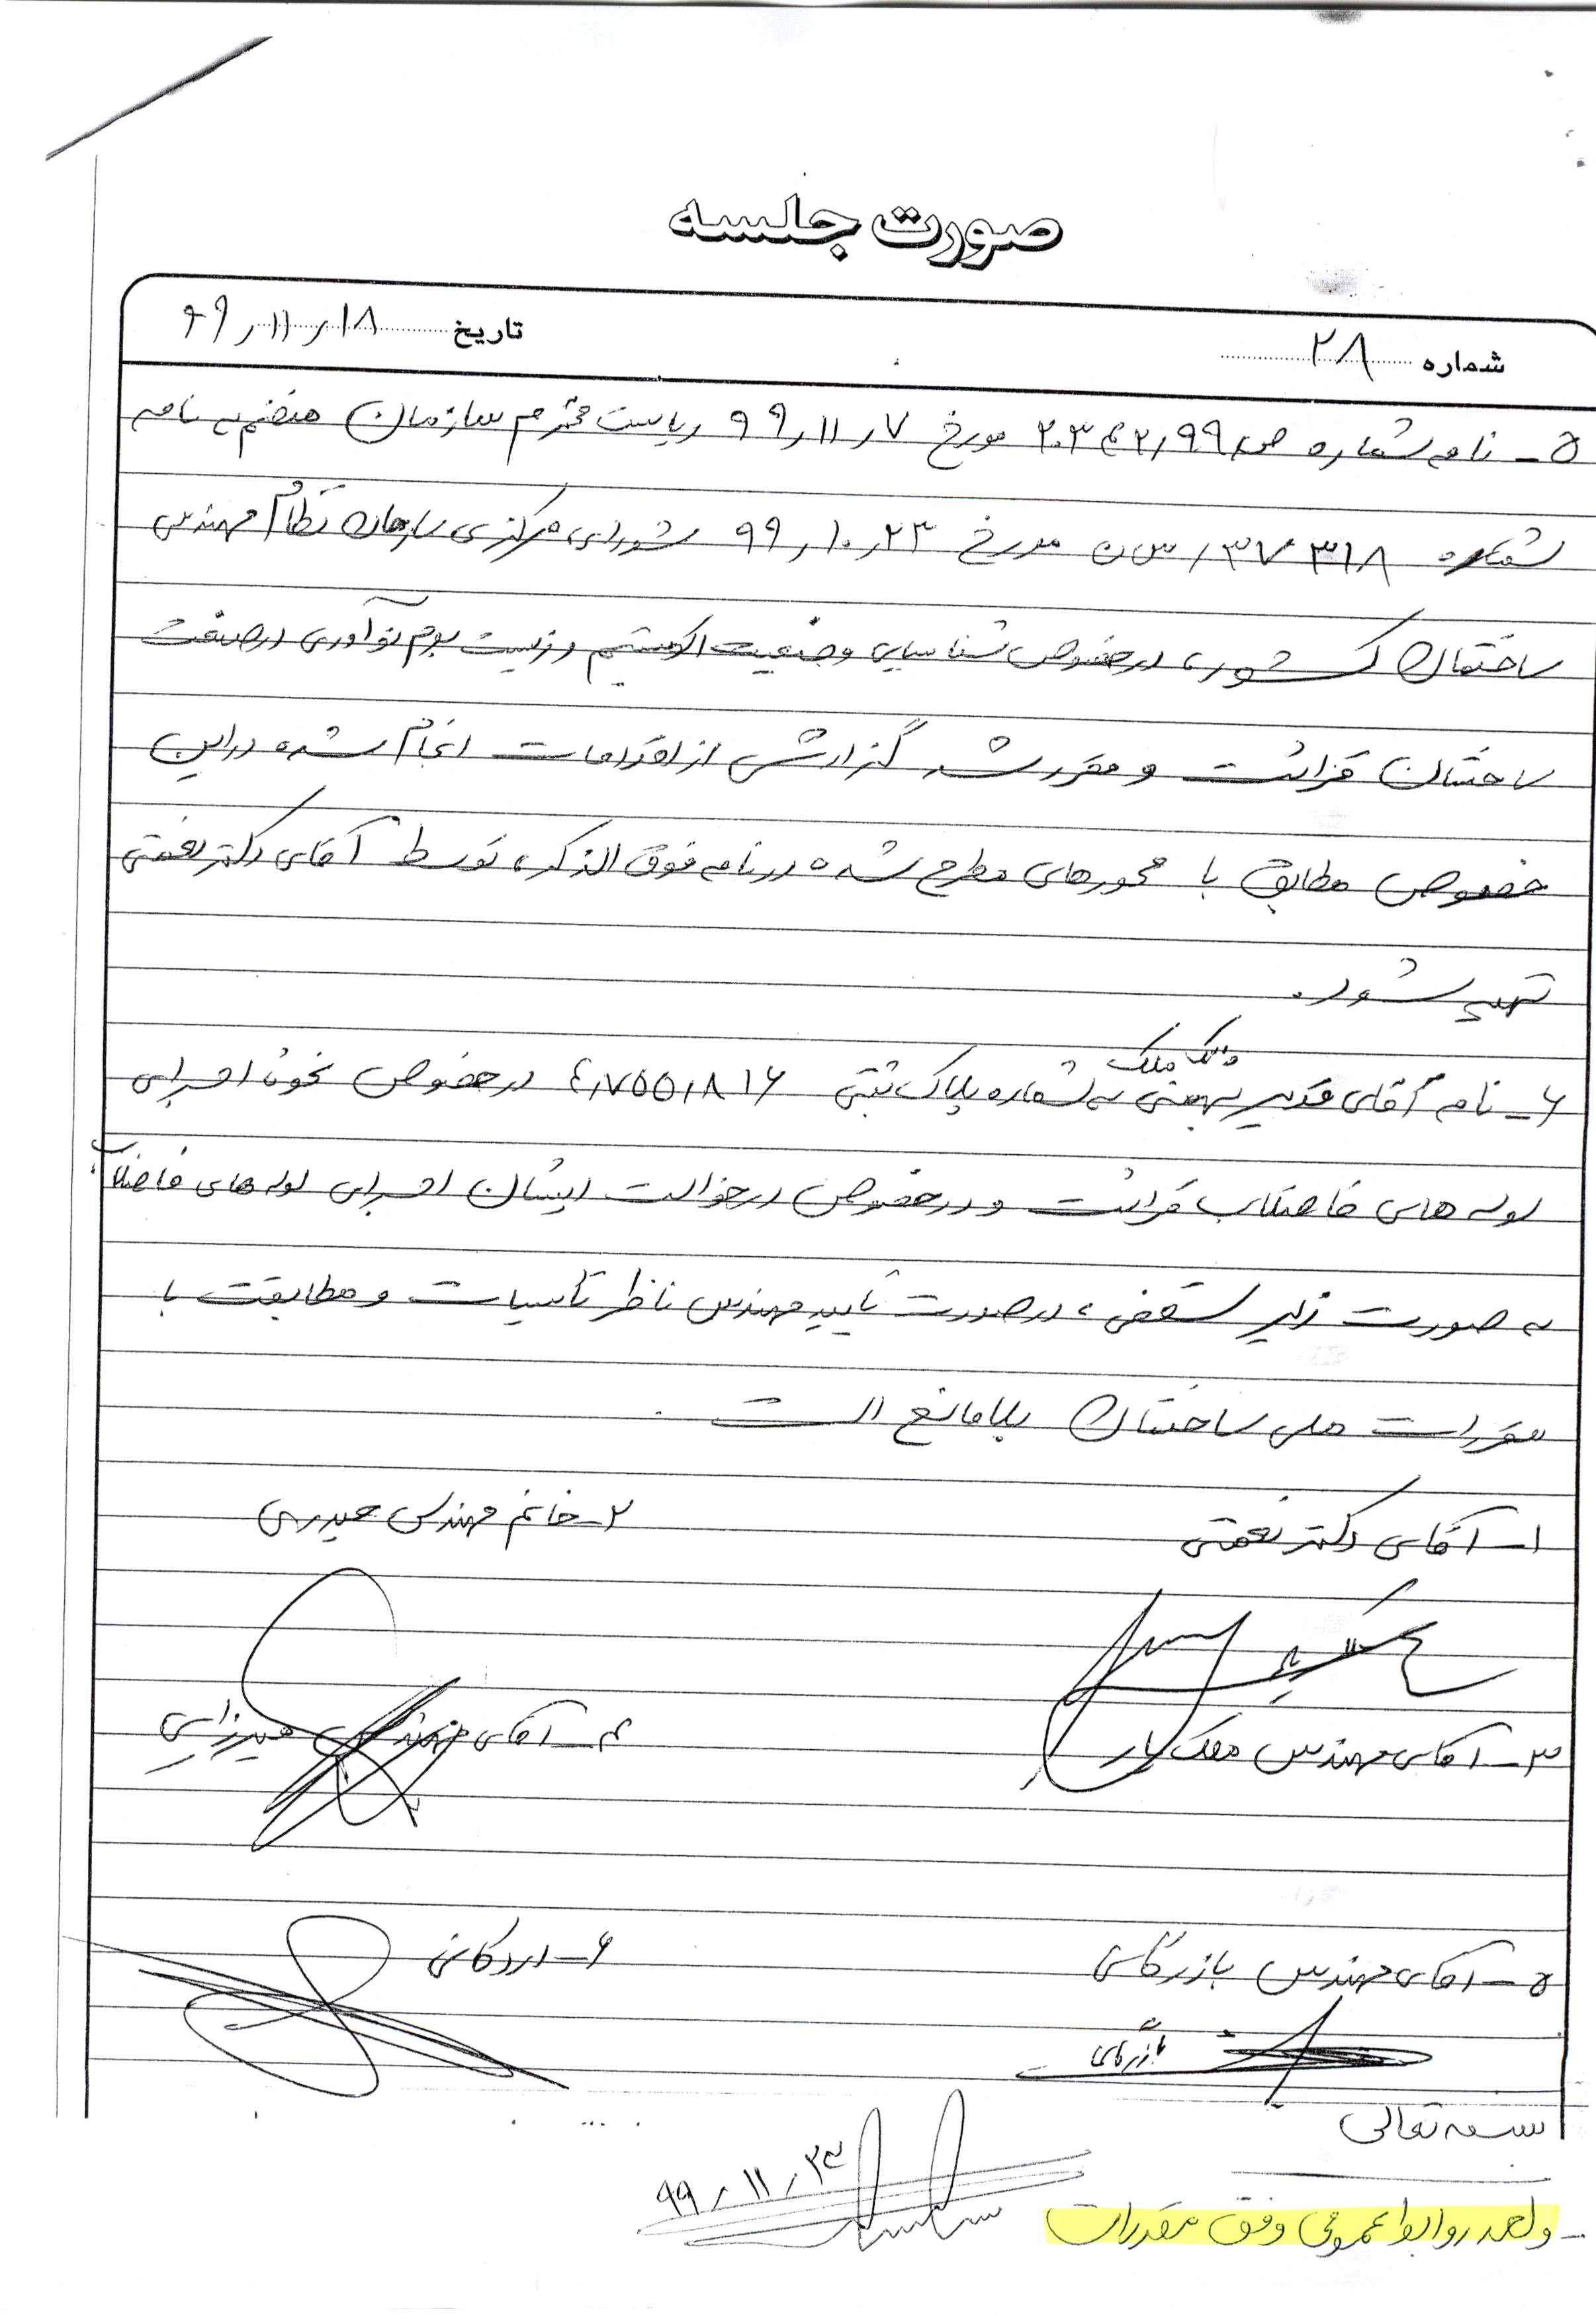 صورت جلسه
شماره ۲۸
تاریخ ۹۹/۱۱/۱۸
۵- نامه شماره ص/۲/۹۹ ۲۰۳۴ مورخ ۹۹/۱۱/۷ ریاست محترم سازمان منضم به نامه
شماره ۳۷۳۱۸/ش ن مورخ ۹۹/۱۰/۲۳ شورای مرکزی سازمان نظام مهندسی
ساختمان کشور، درخصوص شناسایی وضعیت اکوسیستم و زیست بوم نوآوری درصنعت
ساختمان قرائت و مقرر شد گزارشی از اقدامات انجام شده دراین
خصوص مطابق با محورهای مطرح شده در نامه فوق الذکر، توسط آقای دکتر نعمتی
تهیه شود.
مالک ملک
۶- نامه آقای قدیر بهمنی به شماره پلاک ثبتی ۴/۷۵۵/۸۱۶ درخصوص نحوه اجرای
لوله های فاضلاب قرائت و درخصوص درخواست ایشان اجرای لوله های فاضلاب
به صورت زیر سقفی، درصورت تایید مهندس ناظر تاسیسات و مطابقت با
مقررات ملی ساختمان بلامانع است.
۱- آقای دکتر نعمتی
۲- خانم مهندس حیدری
۳- آقای مهندس ملک یار
۴- آقای مهندس میرزایی
۵- آقای مهندس بازرگانی
۶- اردکانی
بازرگانی
بسمه تعالی
- واحد روابط عمومی وفق مقررات
۹۹/۱۱/۲۳